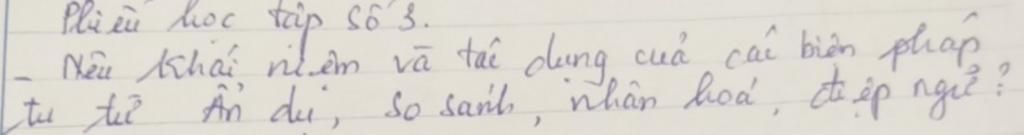 Phiếu học tập số 3.
- Nêu khái niệm và tác dụng của các biện pháp
tu từ Ẩn dụ, so sánh, nhân hoá, điệp ngữ?